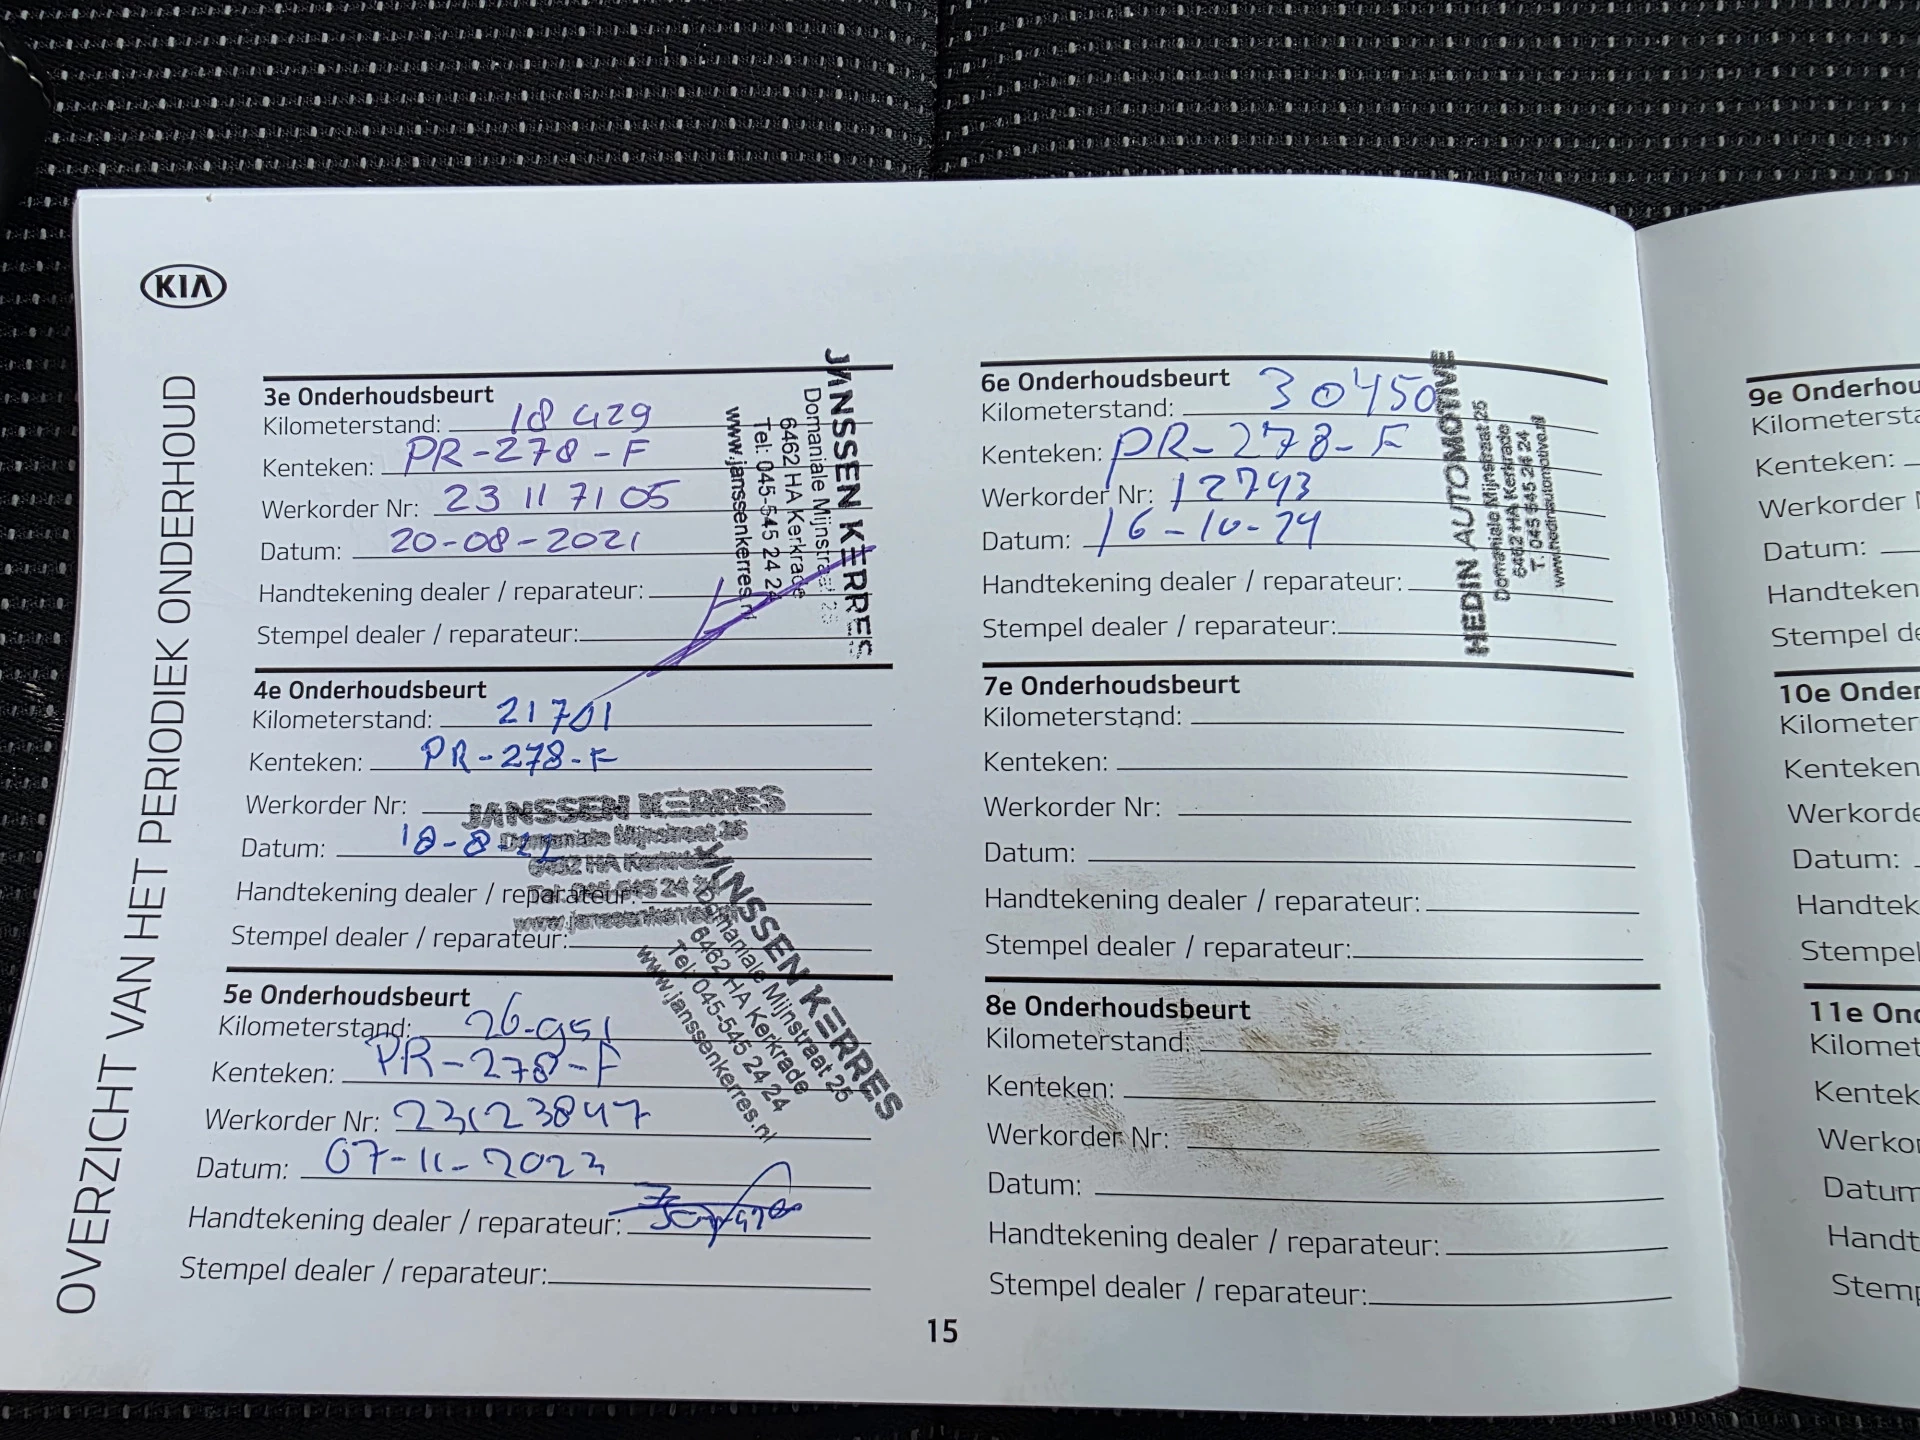 KIA
OVERZICHT VAN HET PERIODIEK ONDERHOUD
3e Onderhoudsbeurt
Kilometerstand: 18 429
Kenteken: PR-278-F
Werkorder Nr: 23 11 71 05
Datum: 20-08-2021
Handtekening dealer / reparateur:
Stempel dealer / reparateur:
JANSSEN KERRES
Domaniale Mijnstraat 25
6462 HA Kerkrade
Tel: 045-545 24 24
www.janssenkerres.nl
4e Onderhoudsbeurt
Kilometerstand: 21701
Kenteken: PR-278-F
Werkorder Nr:
Datum: 18-8-22
Handtekening dealer / reparateur:
Stempel dealer / reparateur:
JANSSEN KERRES
Domaniale Mijnstraat 25
6462 HA Kerkrade
Tel: 045-545 24 24
www.janssenkerres.nl
5e Onderhoudsbeurt
Kilometerstand: 26-951
Kenteken: PR-278-F
Werkorder Nr: 23123847
Datum: 07-11-2023
Handtekening dealer / reparateur:
Stempel dealer / reparateur:
JANSSEN KERRES
Domaniale Mijnstraat 25
6462 HA Kerkrade
Tel: 045-545 24 24
www.janssenkerres.nl
6e Onderhoudsbeurt
Kilometerstand: 30450
Kenteken: PR-278-F
Werkorder Nr: 12743
Datum: 16-10-24
Handtekening dealer / reparateur:
Stempel dealer / reparateur:
HEDIN AUTOMOTIVE
Domaniale Mijnstraat 25
6462 HA Kerkrade
T. 045 545 24 24
www.hedinautomotive.nl
7e Onderhoudsbeurt
Kilometerstand:
Kenteken:
Werkorder Nr:
Datum:
Handtekening dealer / reparateur:
Stempel dealer / reparateur:
8e Onderhoudsbeurt
Kilometerstand:
Kenteken:
Werkorder Nr:
Datum:
Handtekening dealer / reparateur:
Stempel dealer / reparateur:
15
9e Onderhou
Kilometersta
Kenteken:
Werkorder
Datum:
Handteken
Stempel de
10e Onder
Kilometer
Kenteken
Werkorde
Datum:
Handtek
Stempel
11e Ond
Kilomet
Kentek
Werkor
Datum
Handt
Stemp